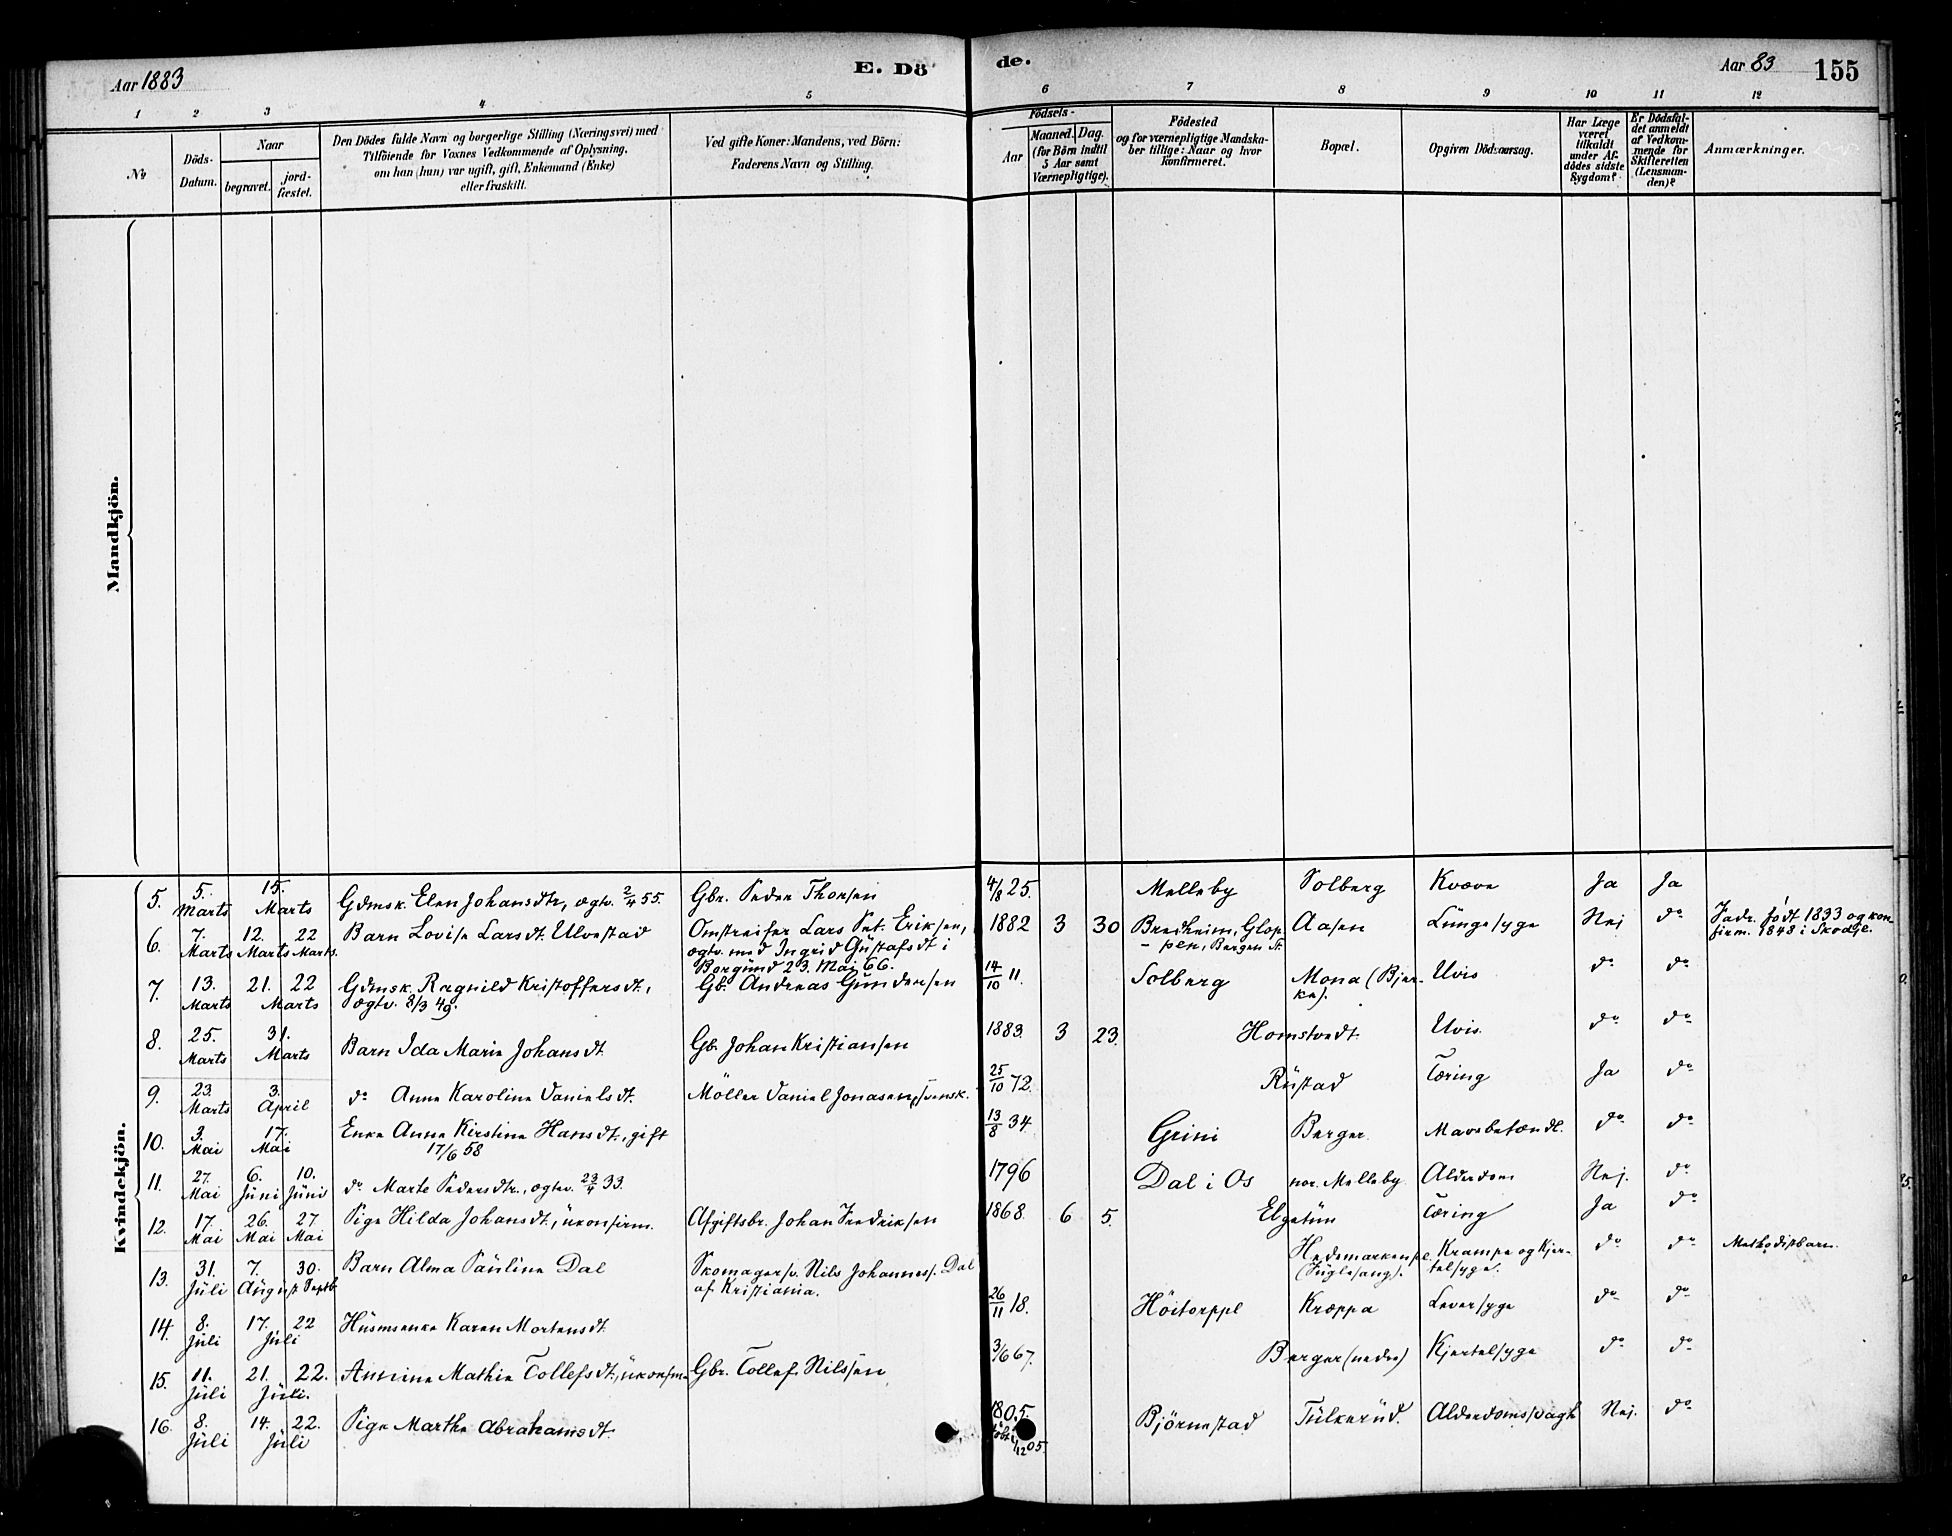 Aar 1883
E. Dö
de.
Aar 83
155
1 2 3 4 5 6 7 8 9 10 11 12
No
Döds-Datum.
Naar
begravet.
jord-fæstet.
Den Dödes fulde Navn og borgerlige Stilling (Næringsvei) med
Tilföiende for Voxnes Vedkommende af Oplysning,
om han (hun) var ugift, gift, Enkemand (Enke)
eller fraskilt.
Ved gifte Koner: Mandens, ved Börn:
Faderens Navn og Stilling.
Födsels-
Aar
Maaned. Dag.
(for Börn indtil
5 Aar samt
Værnepligtige).
Födested
og for værnepligtige Mandska-
ber tillige: Naar og hvor
konfirmeret.
Bopæl.
Opgiven Dödsaarsag.
Har Læge
været
tilkaldt
under Af-
dödes sidste
Sygdom?
Er Dödsfal-
det anmeldt
af Vedkom-
mende for
Skifteretten
(Lensman-
den)?
Anmærkninger.
Mandkjön.
Kvindekjön.
5. 5. Marts 15. Marts Gdmsk. Elen Johansdtr, ægtv. 2/4 55. Gbr. Peder Thorsen 4/8 25. Melleby Solberg Kræve Ja Ja
6. 7. Marts 12. Marts 22 Marts. Barn Lovise Larsdt. Ulvestad Omstreifer Lars Pet. Eriksen,
ægtv. med Ingrid Gustafsdt i
Borgund 23. Mai 66. 1882 3 30 Bredheim, Glop-
pen, Bergen St. Aasen Lungesyge Nej do Fadr. født 1833 og kon
firm. 1848 i Skodje.
7. 13. Marts 21. 22 Marts Gdmsk. Ragnild Kristoffersdt.,
ægtv. 8/3 49. Gb. Andreas Gundersen 14/10 11. Solberg Mona (Bjer-
ke). Uvis do do
8. 25. Marts 31. Marts Barn Ida Marie Johansdt. Gb. Johan Kristiansen 1883 3 23. Homstvedt Uvis. do do
9. 23. Marts 3. April do Anne Karoline Danielsdt. Möller Daniel Jonasen, svensk. 25/10 72. Rustad Tæring Ja do
10. 3. Mai 17. Mai Enke Anne Kirstine Hansdt., gift
17/6 58 13/8 34. Grini Berger Mavebetændl. do do
11. 27. Mai 6. Juni 10. Juni do Marte Pedersdtr., ægtv. 23/4 33. 1796 Dal i Os nor. Melleby Alderdom Nej. do
12. 17. Mai 26. Mai 27 Mai Pige Hilda Johansdt., ukonfirm. Afgiftsbr. Johan Fredriksen 1868. 6 5. Elgetun Tæring Ja do
13. 31. Juli 7. August 30. Septb Barn Alma Pauline Dal Skomagersv. Nils Johanness. Dal
af Kristiania. Hedemarkenpl.
(Fuglesang). Krampe og Kjer-
telsyge. do do Methodistbarn.
14. 8. Juli 17. 22 Juli Husmsenke Karen Mortensdt. 26/11 18. Höitorppl Kræppa Leversyge do do
15. 11. Juli 21. 22. Juli. Annine Mathie Tollefsdt., ukonfirm Gbr. Tollef Nilssen 3/6 67. Berger (nedre) Kjertelsyge do do
16. 8. Juli 14. 22. Juli Pige Marthe Abrahamsdt. 1805.
05. Björnestad Tulkerud. Alderdomssvagh Nej. do